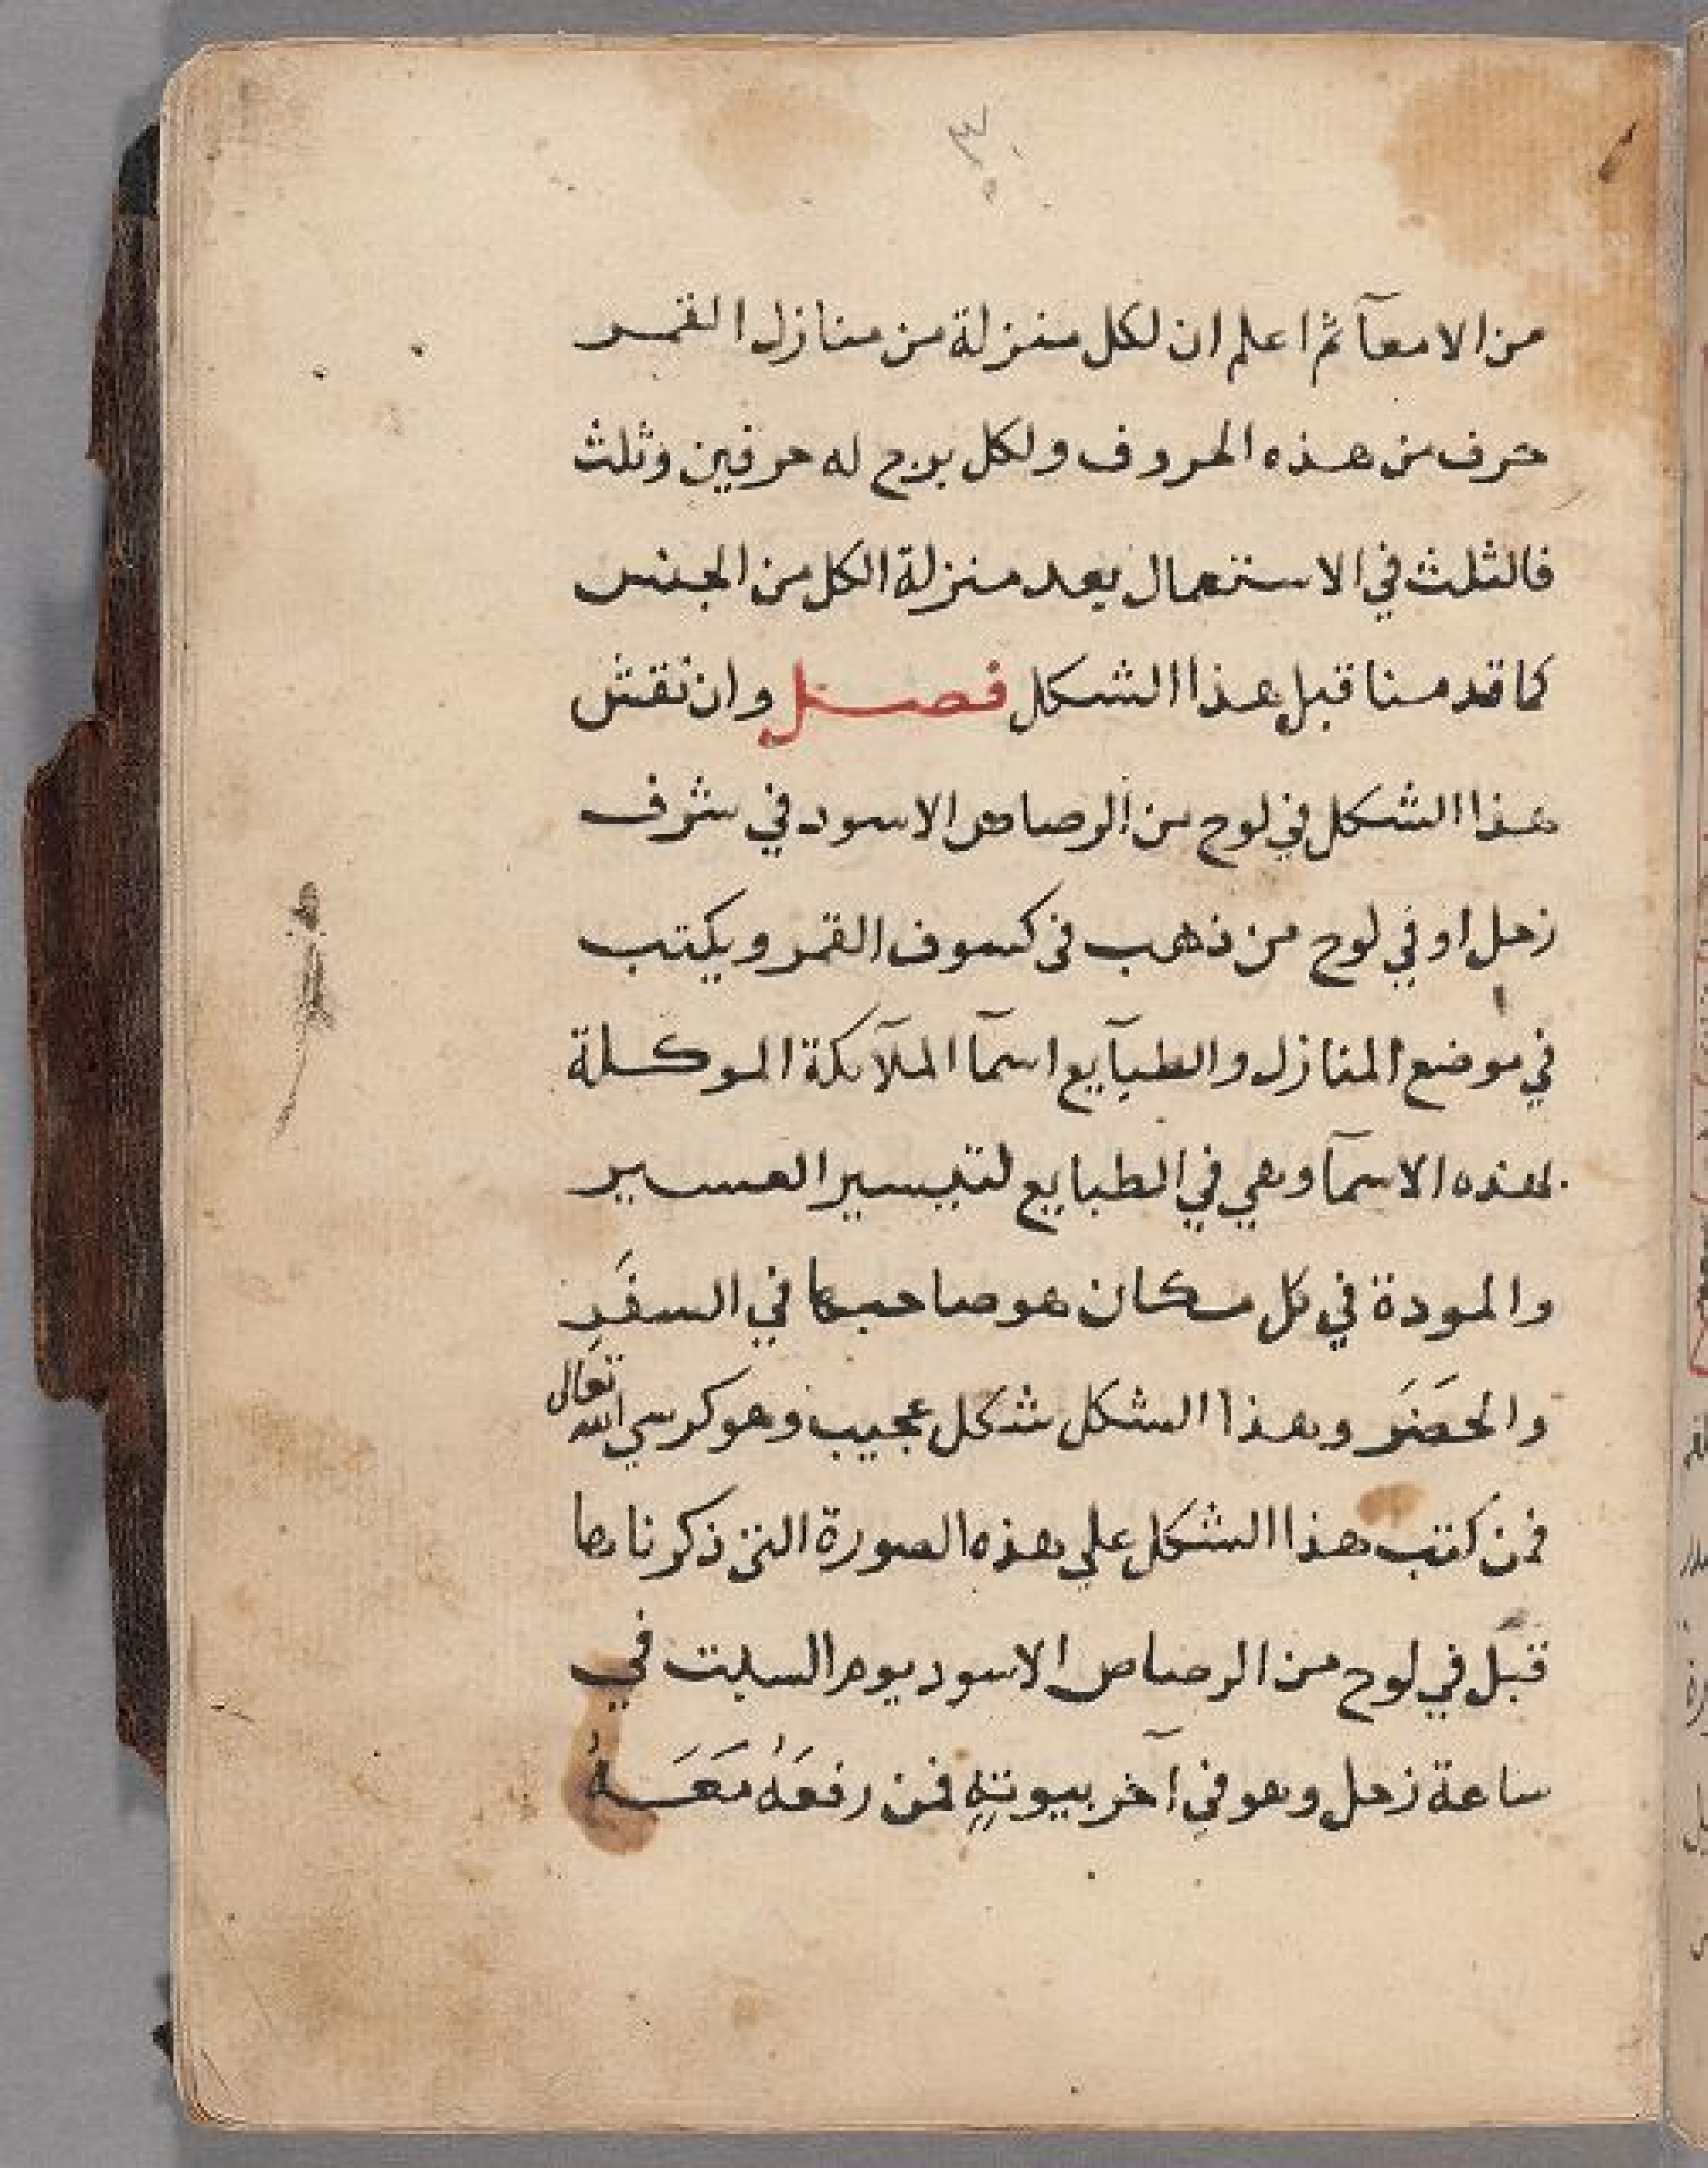 ٣٠
من الامعآ ثم اعلم ان لكل منزلة من منازل القمر
حرف من هذه الحروف ولكل برج له حرفين وثلث
فالثلث في الاستعمال يعد منزلة الكل من الجنس
كما قدمنا قبل هذا الشكل فصل وان نقش
هذا الشكل في لوح من الرصاص الاسود في شرف
زحل او في لوح من ذهب في كسوف القمر ويكتب
في موضع المنازل والطبآيع اسمآ الملآيكة الموكلة
لهذه الاسمآ وهي في الطبايع لتيسير العسير
والمودة في كل مكان هو صاحبها في السفَر
والحضَر وهذا الشكل شكل عجيب وهو كرسي الله تعالى
فمن كتب هذا الشكل علي هذه الصورة التي ذكرناها
قبل في لوح من الرصاص الاسود يوم السبت في
ساعة زحل وهو في آخر بيوته فمن رفعَهُ مَعَهُ